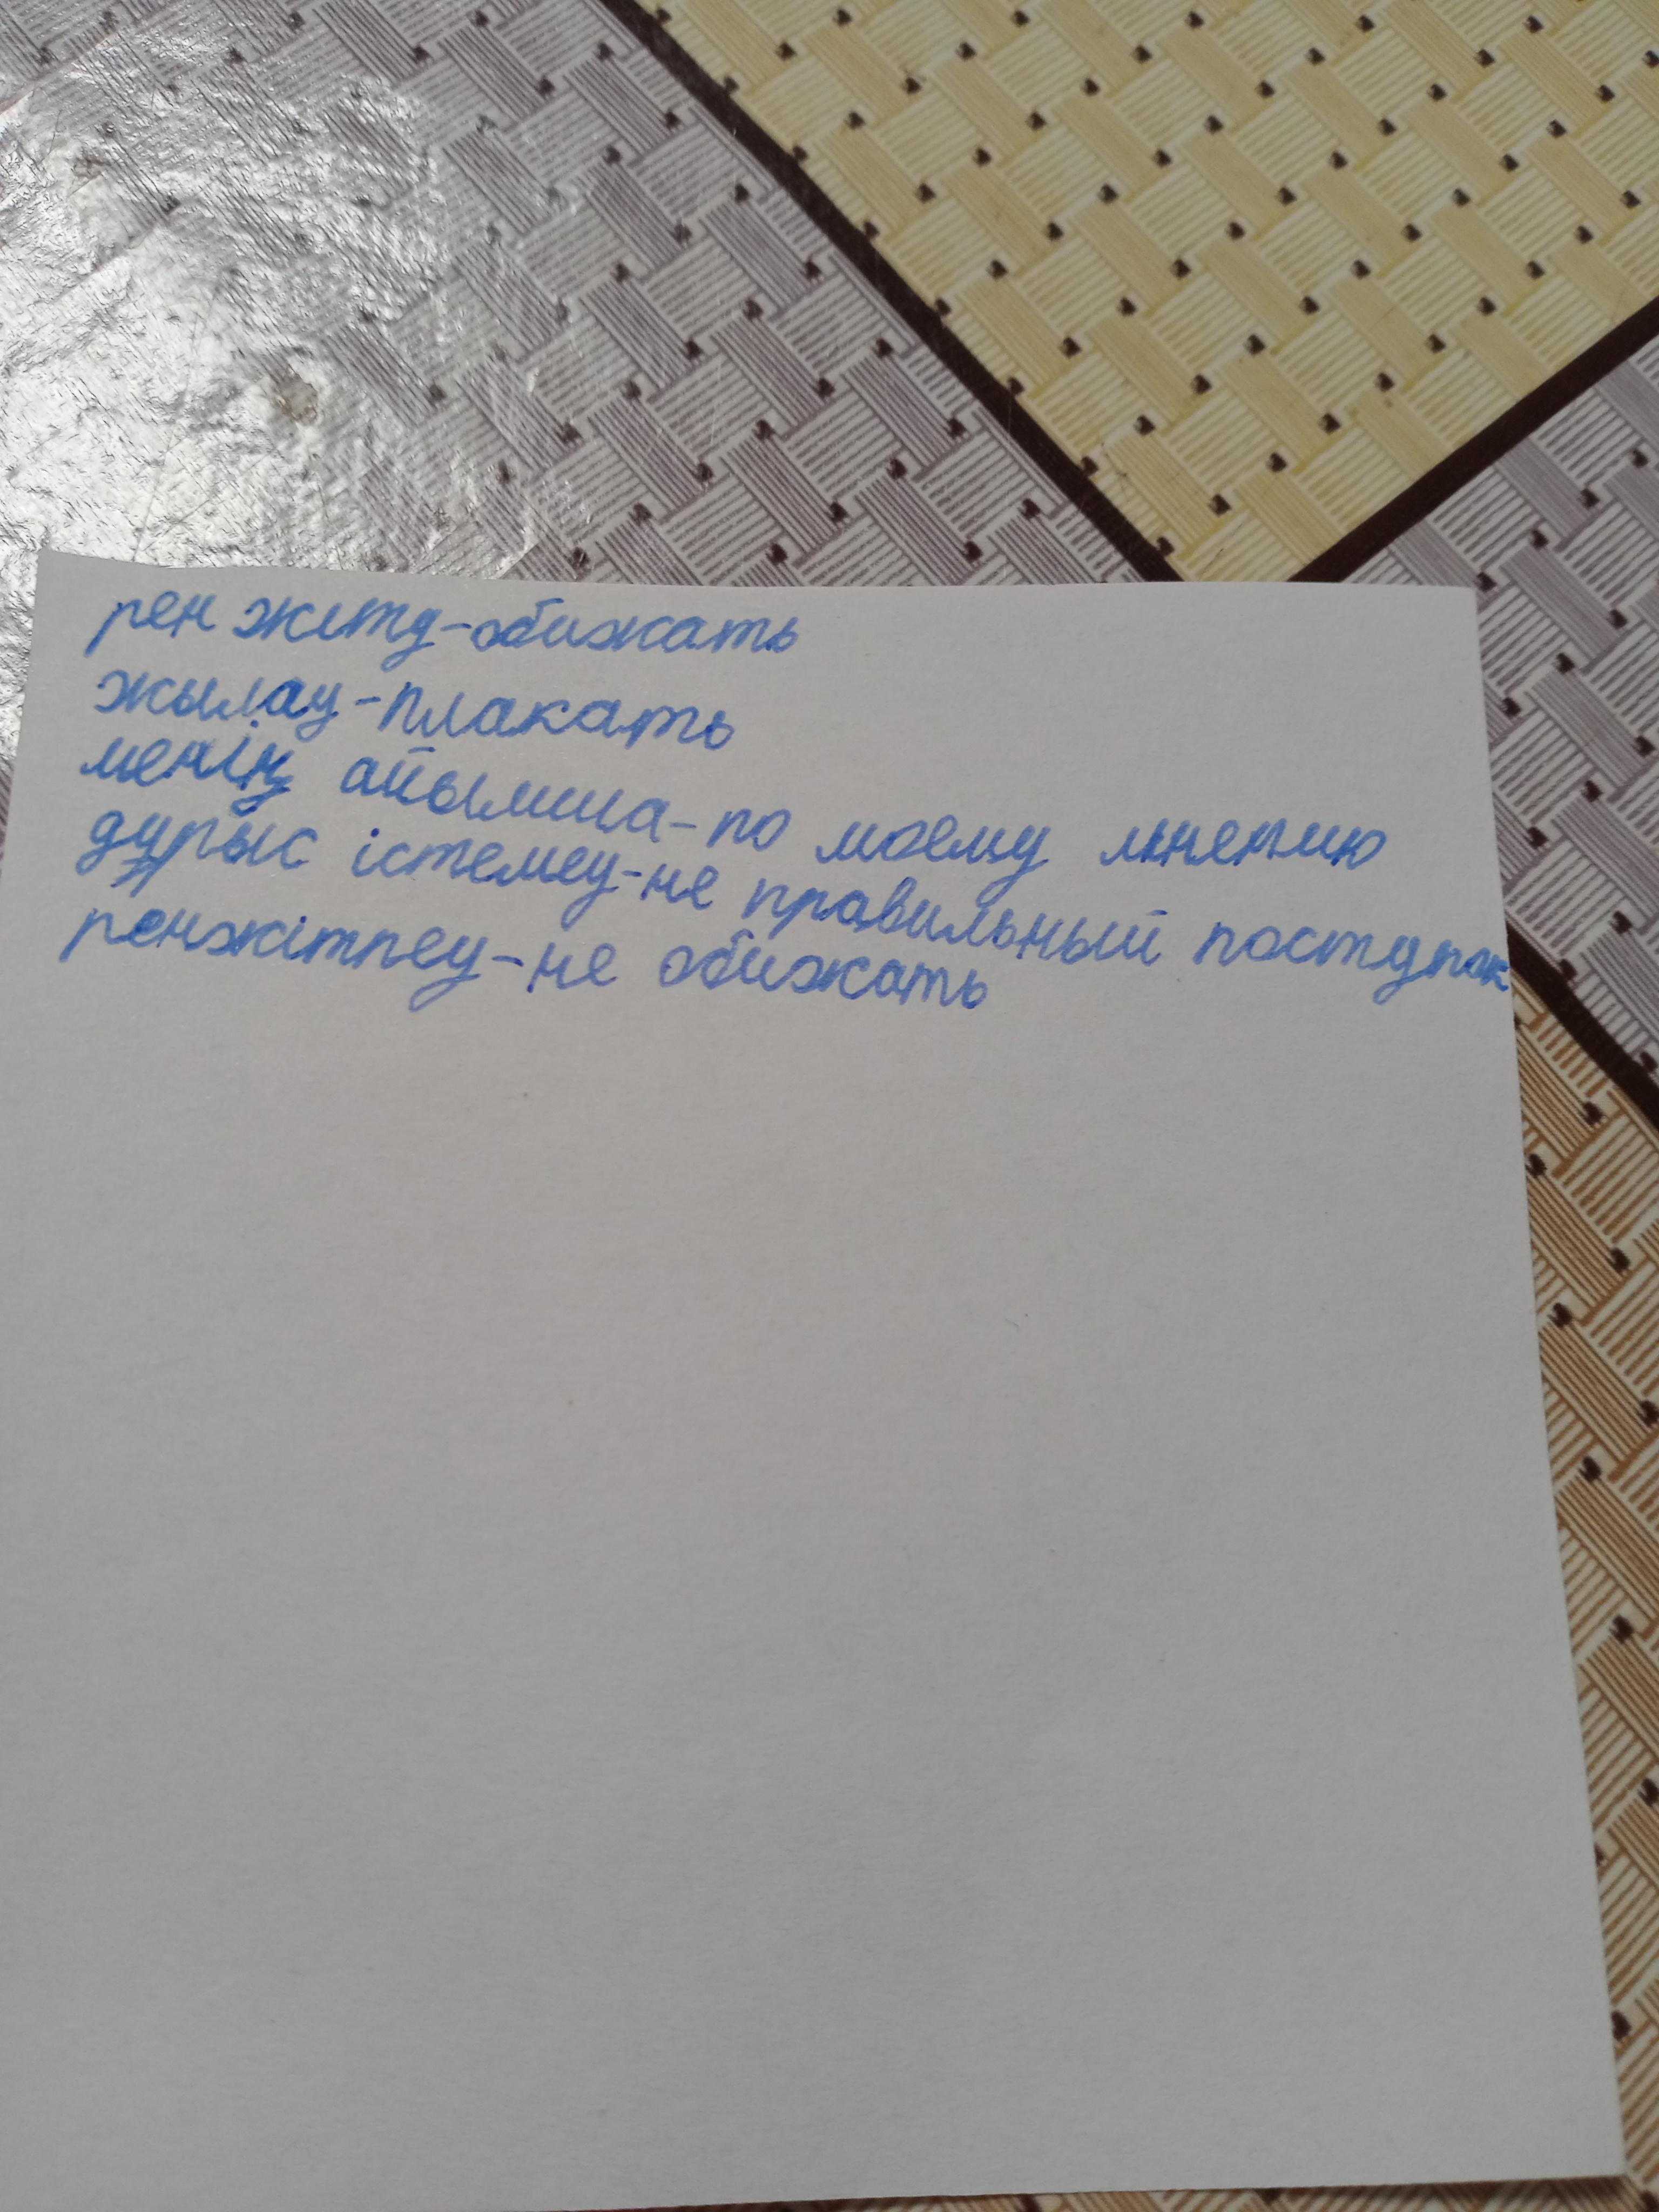 ренжіту-обижать
жылау-плакать
менің айымша-по моему мнению
дұрыс істемеу-не правильный поступок
ренжітпеу-не обижать